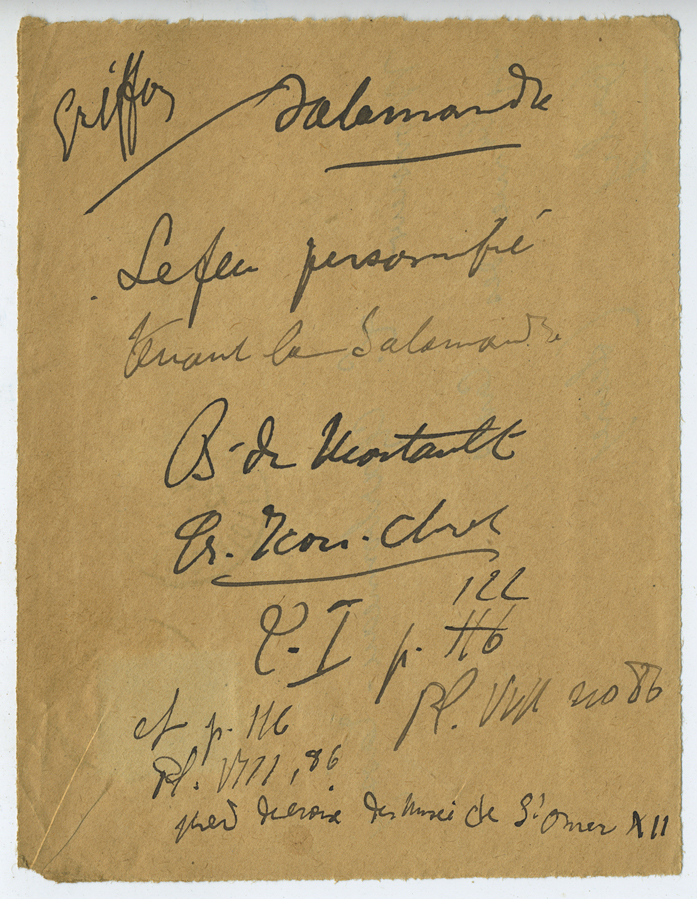 Griffon
Salamandre
Le feu personnifié
tenant la Salamandre
B. de Montault
Tr. Icon. Chret
122
T. I p. 116
Pl. VIII no 86
et p. 116
Pl. VIII, 86
pied de croix du Musée de St Omer XII